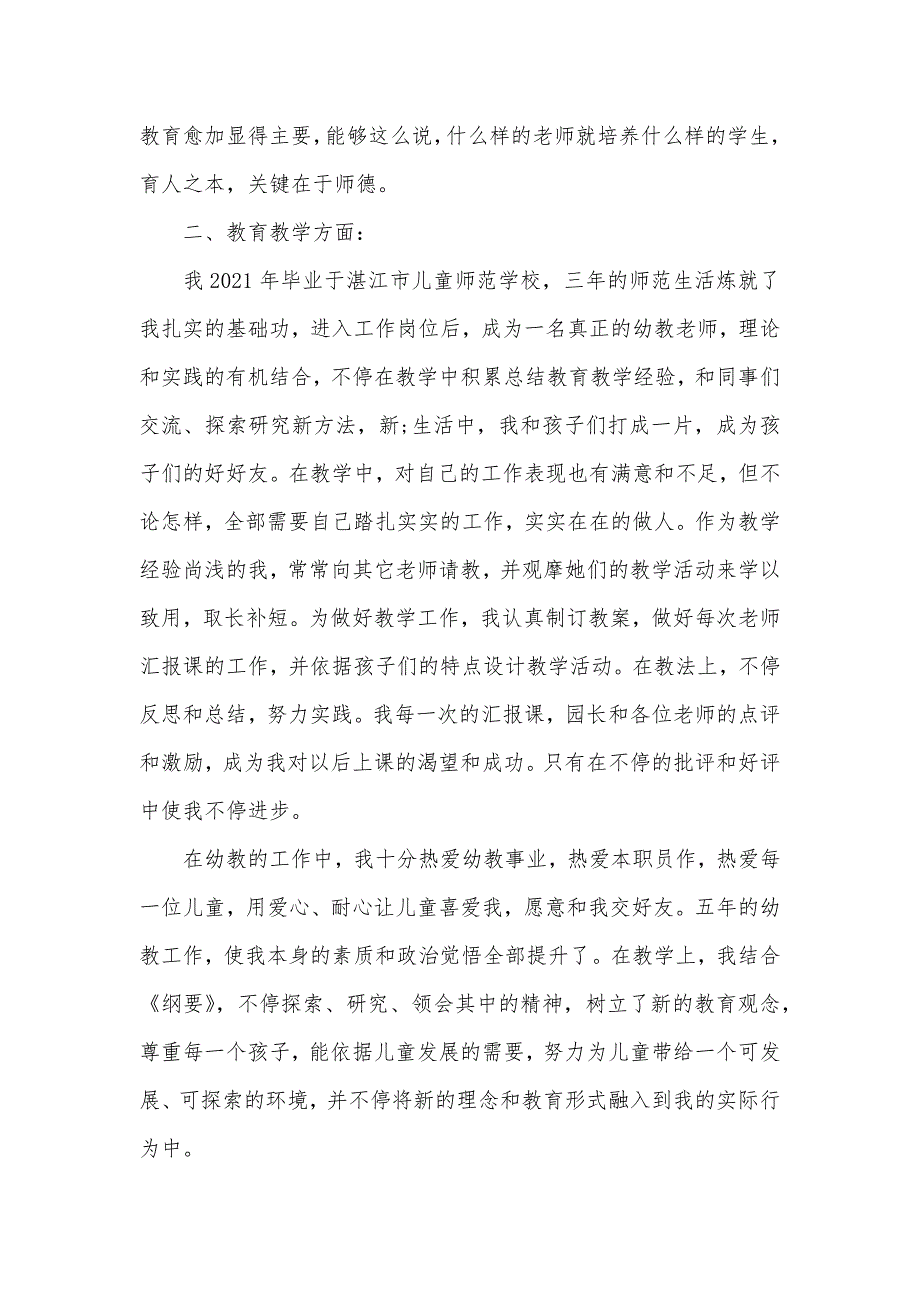 教育愈加显得主要，能够这么说，什么样的老师就培养什么样的学生，
育人之本，关键在于师德。
二、教育教学方面：
我 2021 年毕业于湛江市儿童师范学校，三年的师范生活炼就了
我扎实的基础功，进入工作岗位后，成为一名真正的幼教老师，理论
和实践的有机结合，不停在教学中积累总结教育教学经验，和同事们
交流、探索研究新方法，新;生活中，我和孩子们打成一片，成为孩
子们的好好友。在教学中，对自己的工作表现也有满意和不足，但不
论怎样，全部需要自己踏扎实实的工作，实实在在的做人。作为教学
经验尚浅的我，常常向其它老师请教，并观摩她们的教学活动来学以
致用，取长补短。为做好教学工作，我认真制订教案，做好每次老师
汇报课的工作，并依据孩子们的特点设计教学活动。在教法上，不停
反思和总结，努力实践。我每一次的汇报课，园长和各位老师的点评
和激励，成为我对以后上课的渴望和成功。只有在不停的批评和好评
中使我不停进步。
在幼教的工作中，我十分热爱幼教事业，热爱本职员作，热爱每
一位儿童，用爱心、耐心让儿童喜爱我，愿意和我交好友。五年的幼
教工作，使我本身的素质和政治觉悟全部提升了。在教学上，我结合
《纲要》，不停探索、研究、领会其中的精神，树立了新的教育观念，
尊重每一个孩子，能依据儿童发展的需要，努力为儿童带给一个可发
展、可探索的环境，并不停将新的理念和教育形式融入到我的实际行
为中。